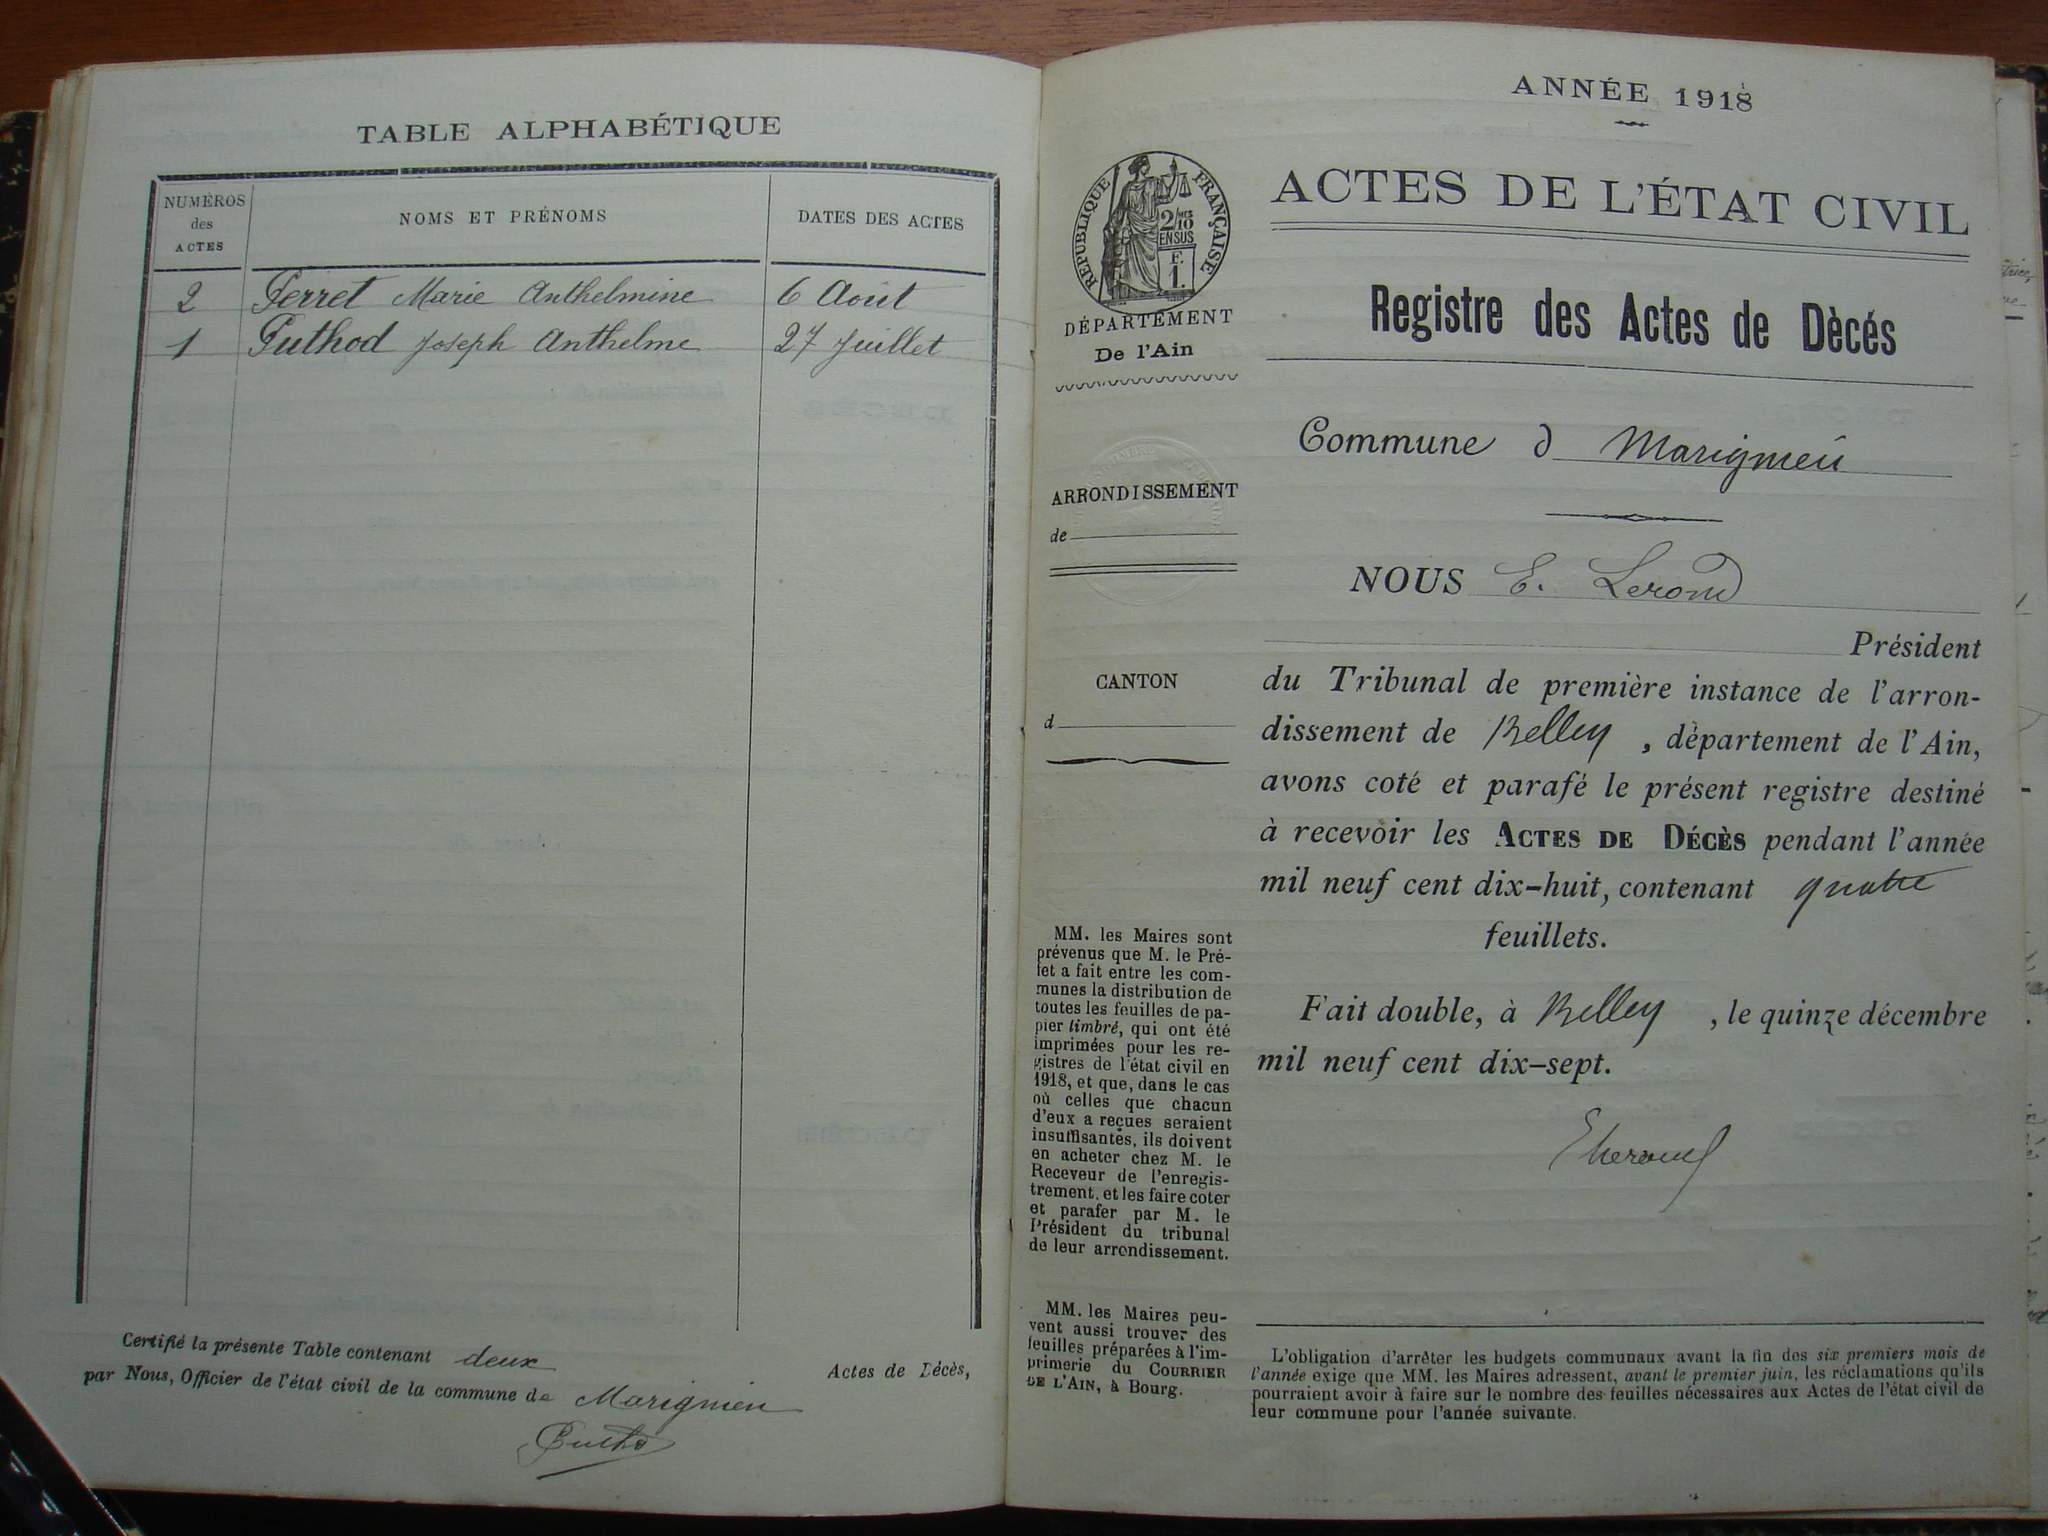 TABLE ALPHABÉTIQUE
NUMÉROS
des
ACTES
NOMS ET PRÉNOMS
DATES DES ACTES
2 Perret Marie Anthelmine 6 Août
1 Puthod Joseph Anthelme 27 Juillet
Certifié la présente Table contenant deux Actes de Décès,
par Nous, Officier de l'état civil de la commune de Marignieu
ANNÉE 1918
RÉPUBLIQUE FRANÇAISE
2/10
EN SUS
F.
1.
DÉPARTEMENT
De l'Ain
ARRONDISSEMENT
de
CANTON
d
MM. les Maires sont
prévenus que M. le Pré-
fet a fait entre les com-
munes la distribution de
toutes les feuilles de pa-
pier timbré, qui ont été
imprimées pour les re-
gistres de l'état civil en
1918, et que, dans le cas
où celles que chacun
d'eux a reçues seraient
insuffisantes, ils doivent
en acheter chez M. le
Receveur de l'enregis-
trement, et les faire coter
et parafer par M. le
Président du tribunal
de leur arrondissement.
MM. les Maires peu-
vent aussi trouver des
feuilles préparées à l'im-
primerie du COURRIER
DE L'AIN, à Bourg.
ACTES DE L'ÉTAT CIVIL
Registre des Actes de Dècés
Commune d Marignieu
NOUS E. Lerond
Président
du Tribunal de première instance de l'arron-
dissement de Belley, département de l'Ain,
avons coté et parafé le présent registre destiné
à recevoir les ACTES DE DÉCÈS pendant l'année
mil neuf cent dix-huit, contenant quatre
feuillets.
Fait double, à Belley, le quinze décembre
mil neuf cent dix-sept.
L'obligation d'arrêter les budgets communaux avant la fin des six premiers mois de
l'année exige que MM. les Maires adressent, avant le premier juin, les réclamations qu'ils
pourraient avoir à faire sur le nombre des feuilles nécessaires aux Actes de l'état civil de
leur commune pour l'année suivante.